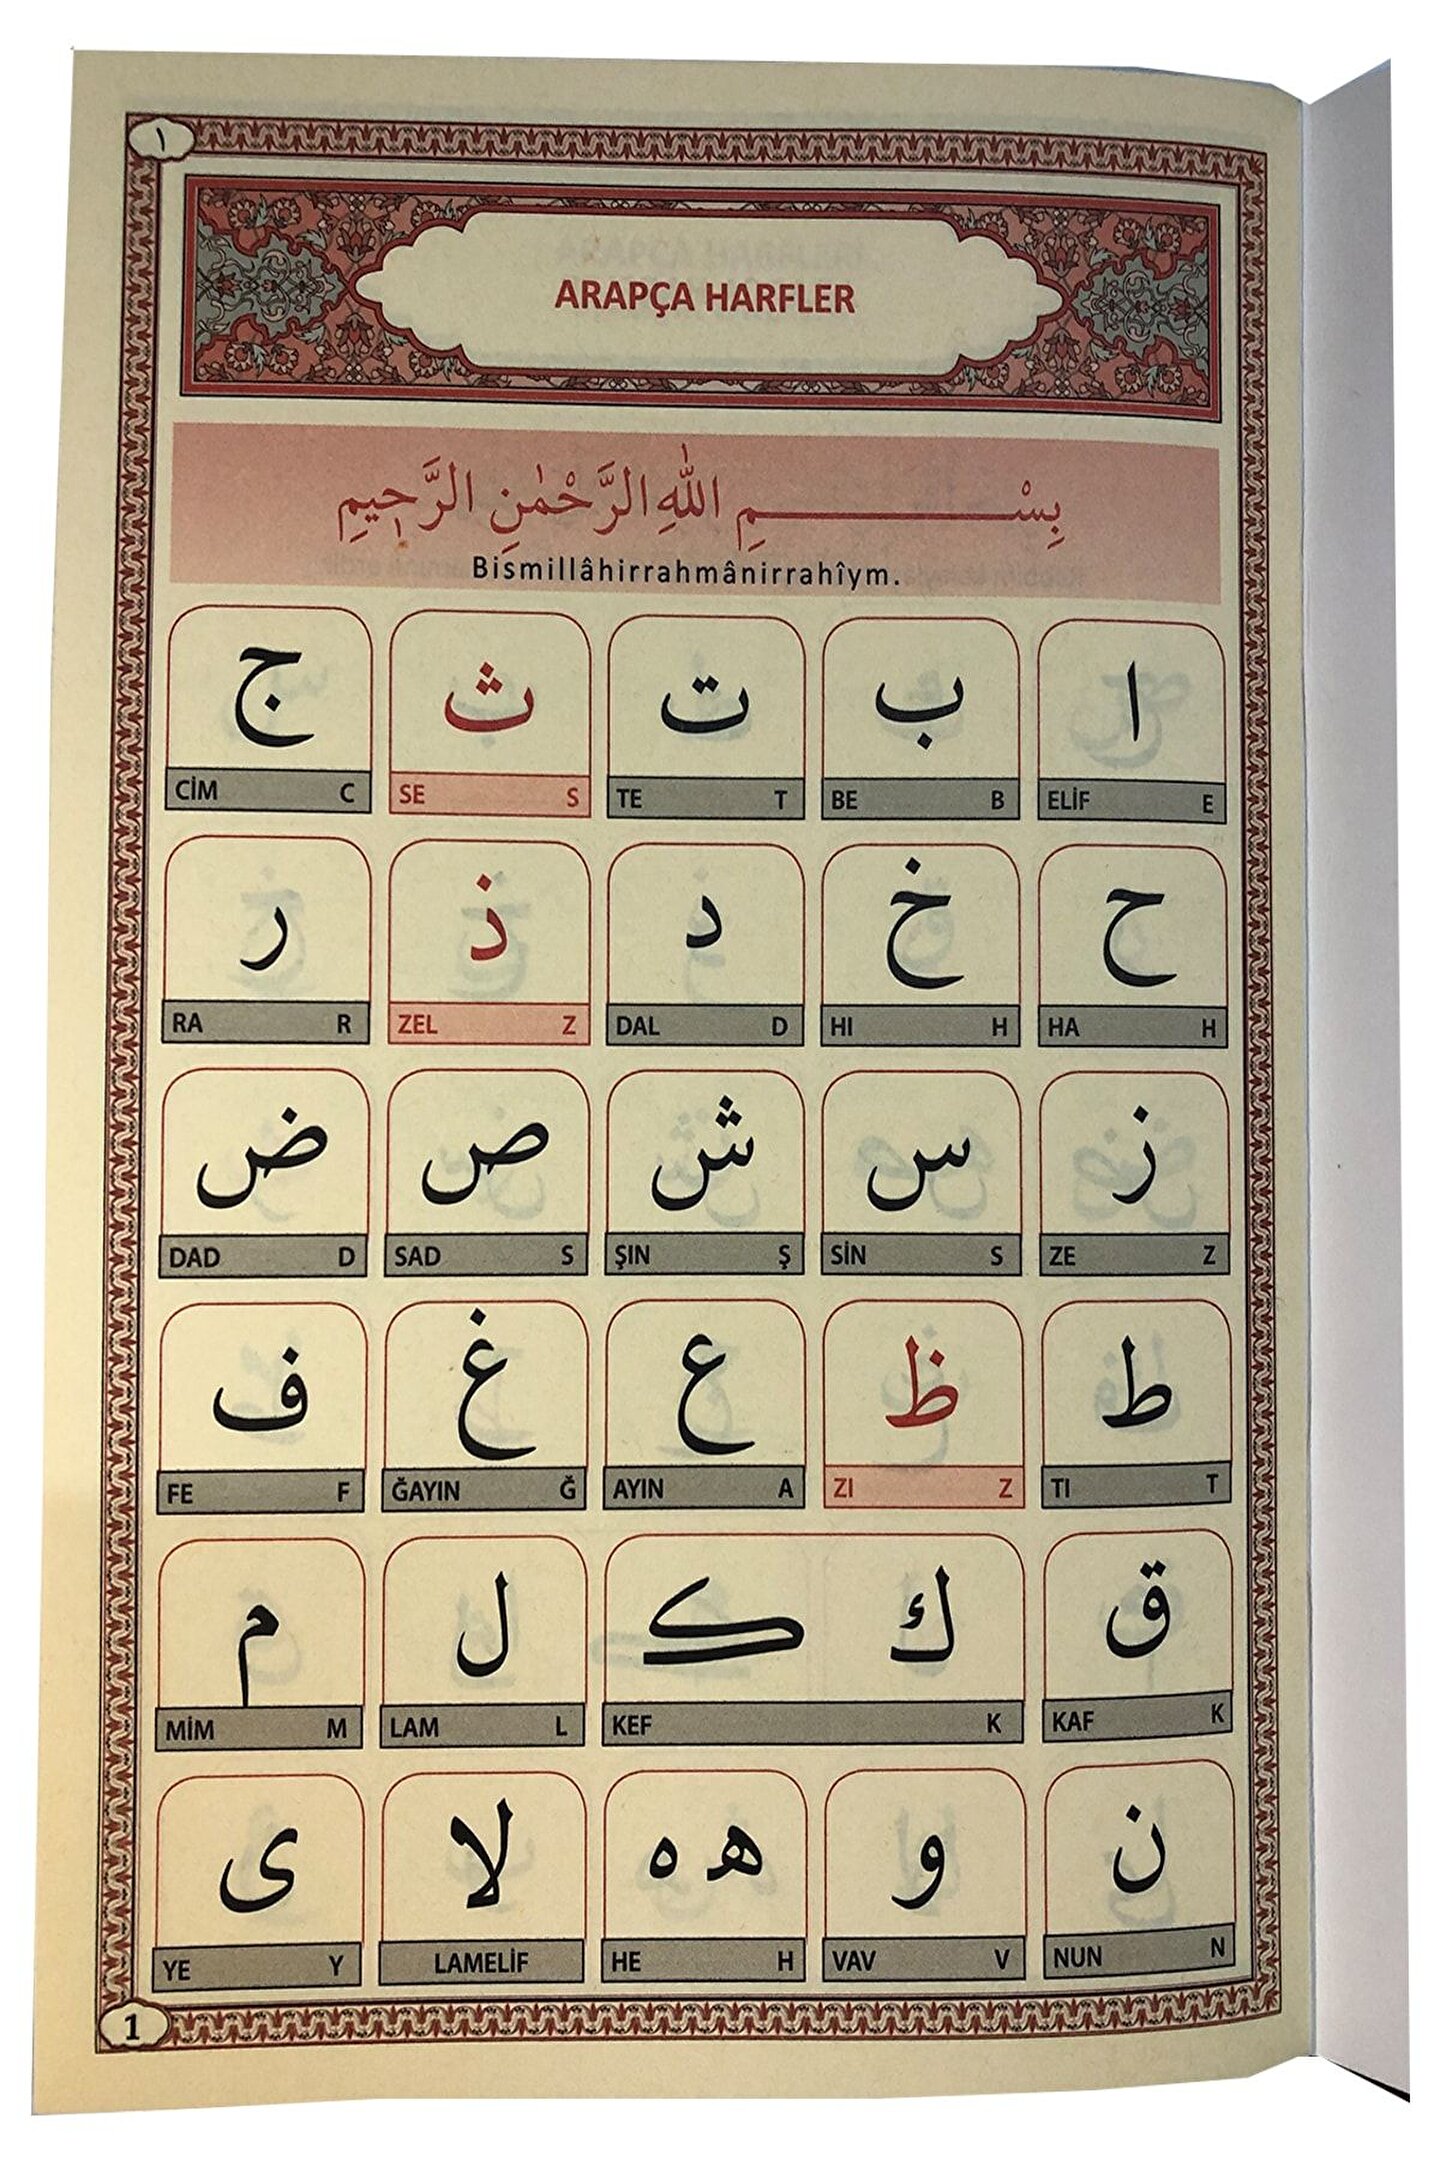 ١
ARAPÇA HARFLER
بِسْمِ اللّٰهِ الرَّحْمٰنِ الرَّحِيمِ
Bismillâhirrahmânirrahîym.
ا ب ت ث ج
ELİF E BE B TE T SE S CİM C
ح خ د ذ ر
HA H HI H DAL D ZEL Z RA R
ز س ش ص ض
ZE Z SİN S ŞIN Ş SAD S DAD D
ط ظ ع غ ف
TI T ZI Z AYIN A ĞAYIN Ğ FE F
ق ك ک ل م
KAF K KEF K LAM L MİM M
ن و ه ه لا ى
NUN N VAV V HE H LAMELİF YE Y
1